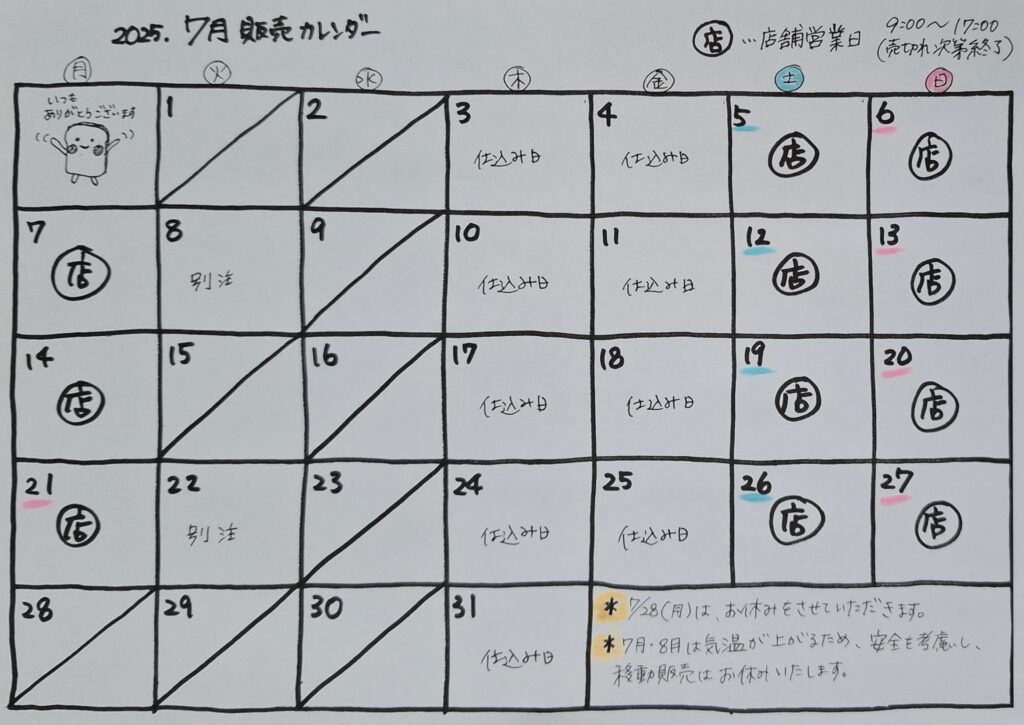 2025. 7月 販売カレンダー
店 …店舗営業日 9:00〜17:00
(売切れ次第終了)
月 火 水 木 金 土 日
いつも
ありがとうございます
1 2 3 4 5 6
仕込み日 仕込み日 店 店
7 8 9 10 11 12 13
店 別注 仕込み日 仕込み日 店 店
14 15 16 17 18 19 20
店 仕込み日 仕込み日 店 店
21 22 23 24 25 26 27
店 別注 仕込み日 仕込み日 店 店
28 29 30 31
仕込み日
* 7/28(月)は、お休みをさせていただきます。
* 7月・8月は気温が上がるため、安全を考慮し、
移動販売はお休みいたします。